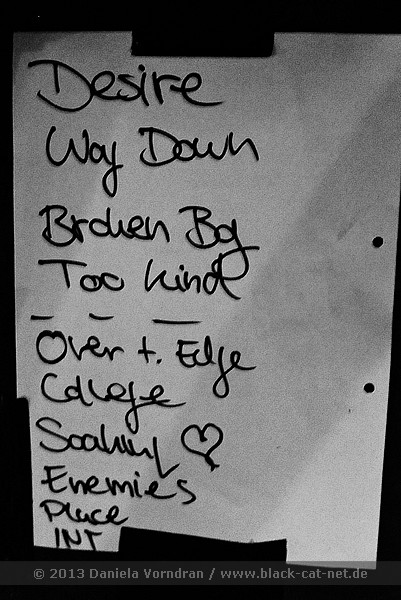 Desire
Way Down
Broken Boy
Too Kind
_ _ _
Over t. Edge
College
Enemies
Place
INT
© 2013 Daniela Vorndran / www.black-cat-net.de